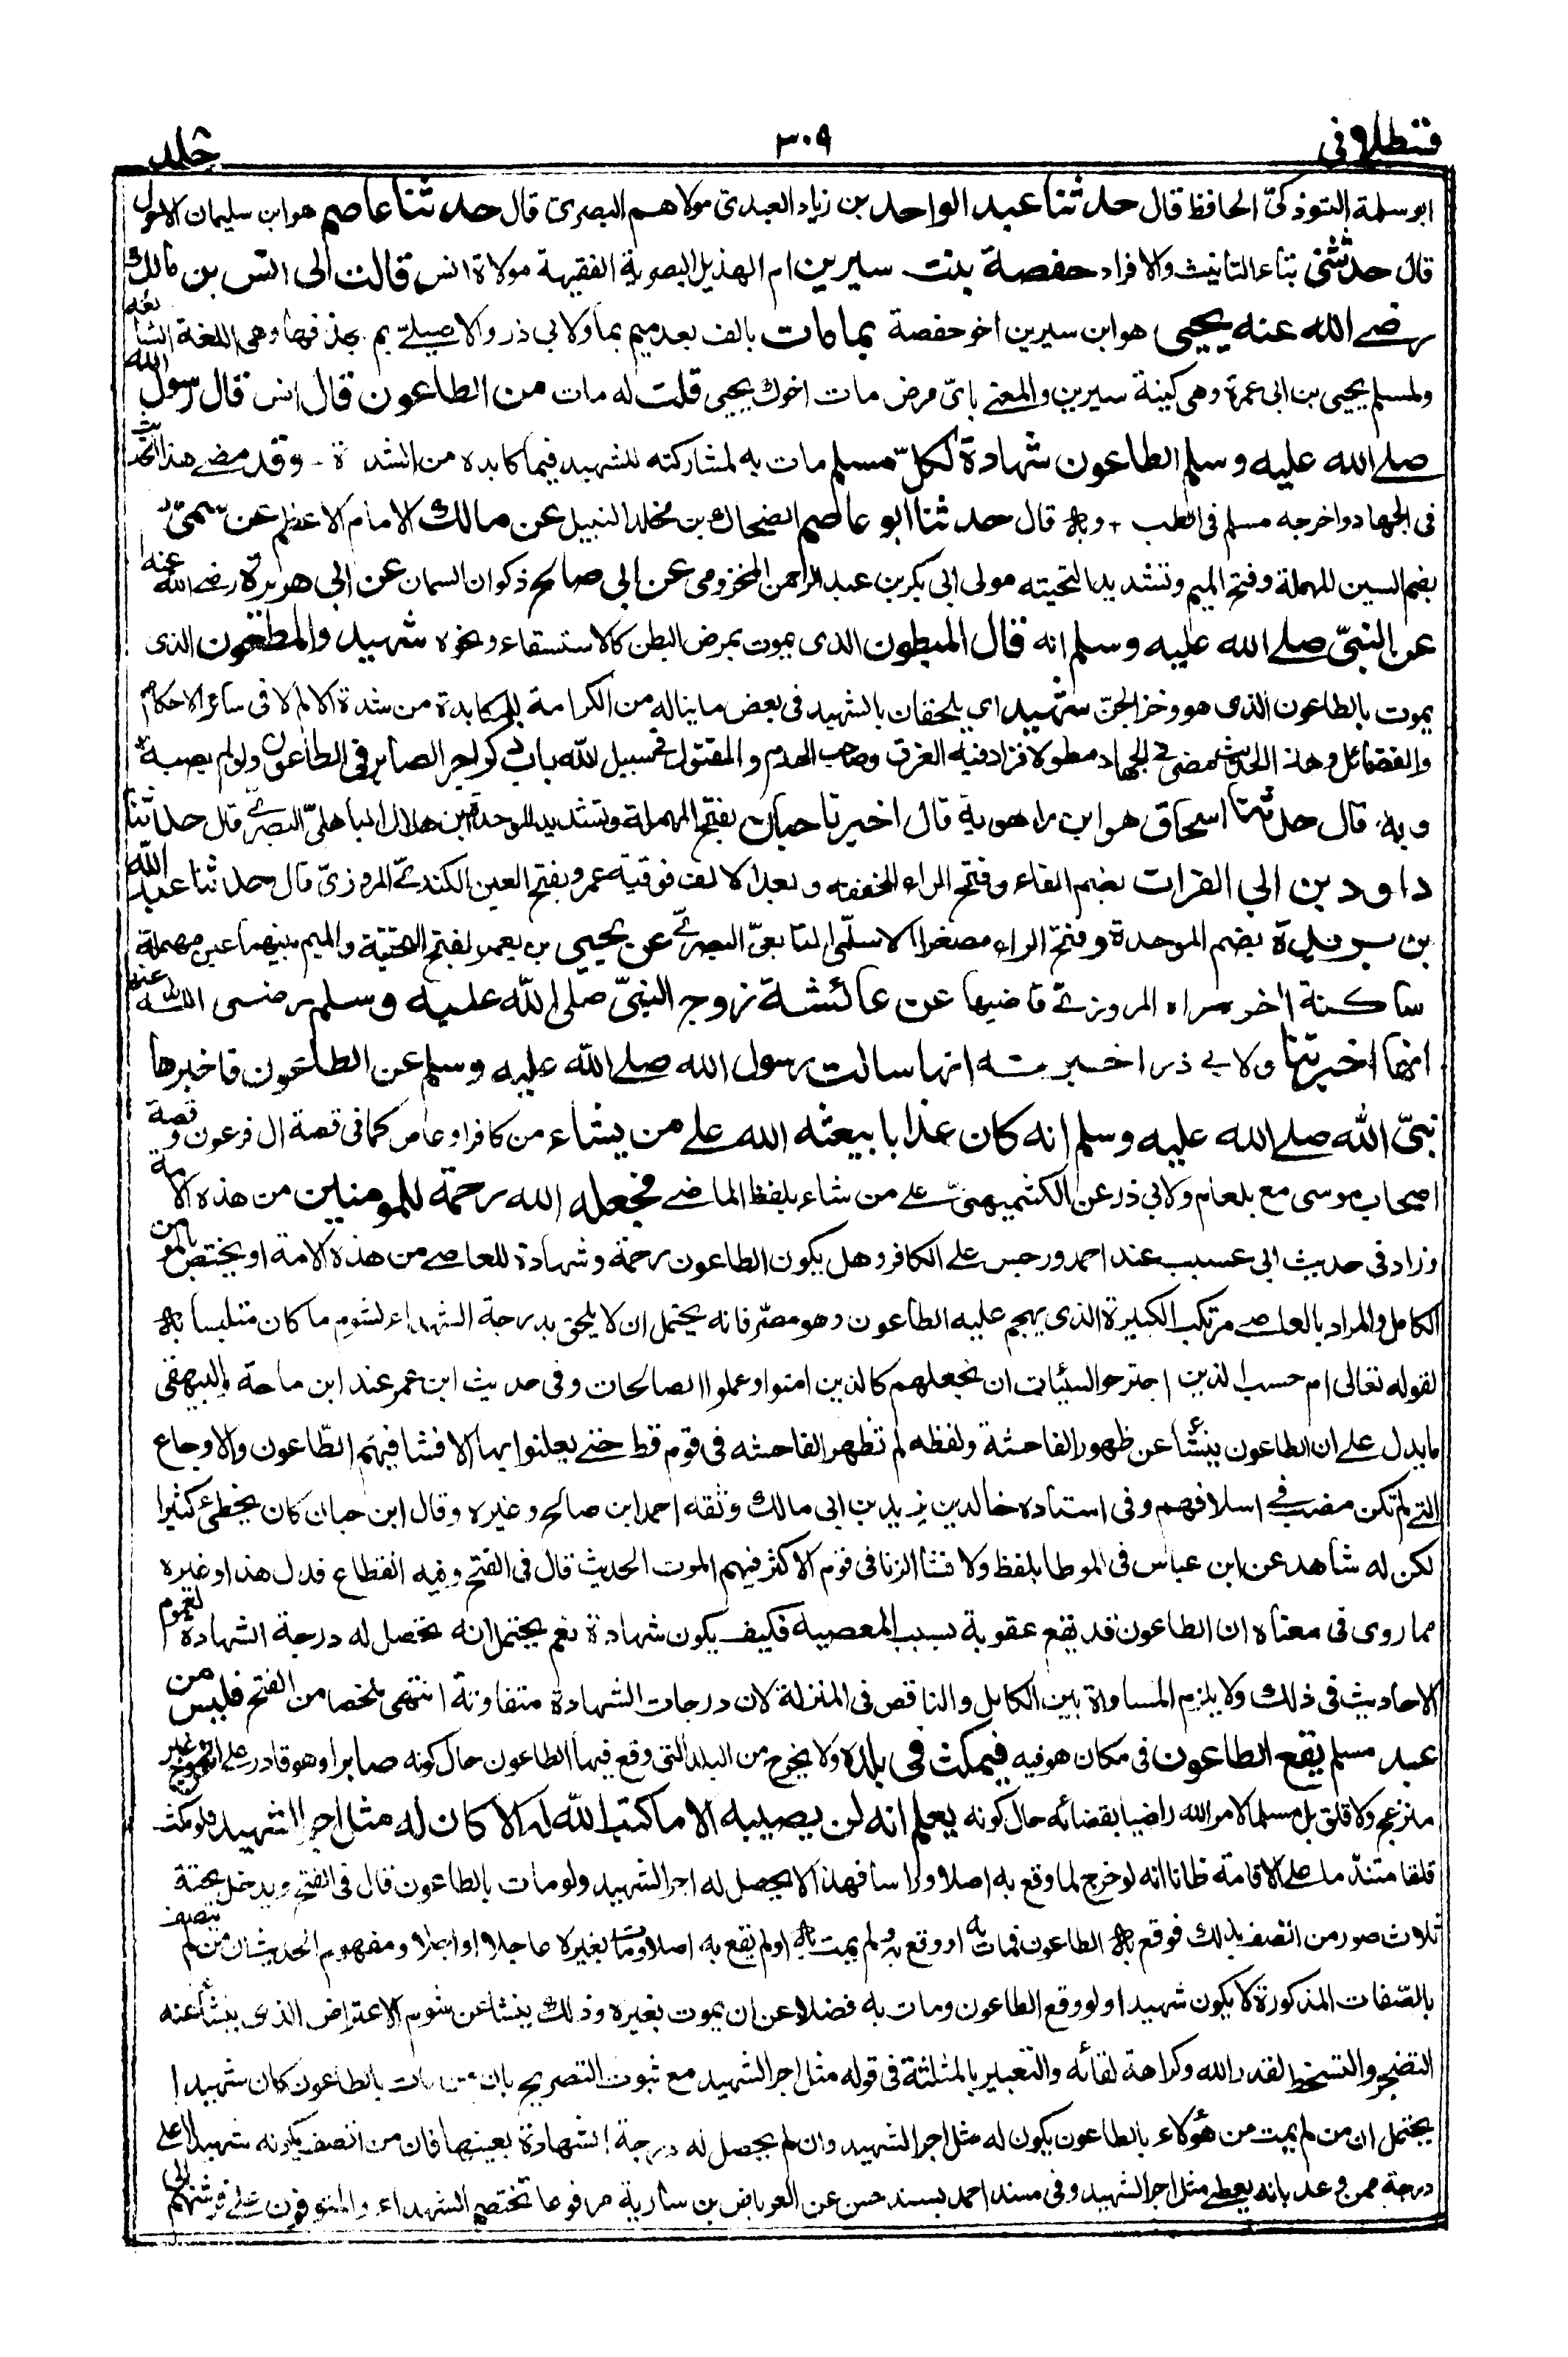 قسطلانى ٣٠٩ جلد ٨
ابو سلمة التبوذكىّ الحافظ قال حدثنا عبد الواحد بن زياد العبدىّ مولاهم البصرىّ قال حدثنا عاصم هو ابن سليمان الاحول
قال حدثتنى بتاء التانيث والافراد حفصة بنت سيرين ام الهذيل البصرية الفقيهة مولاة انس قالت قال لى انس بن مالك
رضى الله عنه يحيى هو ابن سيرين اخو حفصة بما مات بالف بعد ميم بما ولابى ذر والاصيلىّ بم بحذفها وهى اللغة الشائعه
ولمسلم يحيى بن ابى عمرة وهى كنية سيرين والمعنى باىّ مرض مات اخوك يحيى قلت له مات من الطاعون قال انس قال رسول الله
صلى الله عليه وسلم الطاعون شهادة لكلّ مسلم مات به لمشاركته للشهيد فيما كابده من الشدة - وقد مضى هذا الحديث
فى الجهاد واخرجه مسلم فى الطب + وبه قال حدثنا ابو عاصم الضحاك بن مخلد النبيل عن مالك الامام الاعظم عن سمىّ
بضم السين المهملة وفتح الميم وتشديد التحيته مولى ابى بكر بن عبد الرحمن المخزومى عن ابى صالح ذكوان السمان عن ابى هريرة رضى الله عنه
عن النبىّ صلى الله عليه وسلم انه قال المبطون الذى يموت بمرض البطن كالاستسقاء ونحوه شهيد والمطعون الذى
يموت بالطاعون الذى هو وخز الجنّ شهيد اى يلحقان بالشهيد فى بعض ما يناله من الكرامة للمكابدة من شدة الالم لا فى سائر الاحكام
والفضائل وهذا الحديث مضى فى الجهاد مطولا فزاد فيه الغرق وصاحب الهدم والمقتول فى سبيل الله باب ذكر اجر الصابر فى الطاعون ولو لم يصبه
وبه قال حدثنا اسحاق هو ابن راهوية قال اخبرنا حبان بفتح المهملة وتشديد الموحدة ابن هلال الباهلىّ البصرىّ قال حدثنا
داود بن ابى الفرات بضم الفاء وفتح الراء المخففه وبعد الالف فوقية عمرو بفتح العين الكندىّ المروزىّ قال حدثنا عبد الله
بن بريدة بضم الموحدة وفتح الراء مصغرا الاسلمى التابعىّ البصرىّ عن يحيى بن يعمر بفتح التحتية والميم بينهما عين مهملة
ساكنة اخره راء المروزىّ قاضيها عن عائشة زوج النبىّ صلى الله عليه وسلم رضى الله عنها
انها اخبرتنا ولابى ذر اخبرته انها سالت رسول الله صلى الله عليه وسلم عن الطاعون فاخبرها
نبىّ الله صلى الله عليه وسلم انه كان عذابا يبعثه الله على من يشاء من كافر او عاص كما فى قصة ال فرعون وقصة
اصحاب موسى مع بلعام ولابى ذر عن الكشميهنىّ على من شاء بلفظ الماضى فجعله الله رحمة للمومنين من هذه الامة
وزاد فى حديث ابى عسيب عند احمد ورجس على الكافر وهل يكون الطاعون رحمة وشهادة للعاصى من هذه الامة او يختص بالمؤمن
الكامل والمراد بالعاصى مرتكب الكبيرة الذى يهجم عليه الطاعون وهو مصرّ فانه يحتمل ان لا يلحق بدرجة الشهداء لشوم ما كان متلبسا به
لقوله تعالى ام حسب الذين اجترحوا السيئات ان نجعلهم كالذين امنوا وعملوا الصالحات وفى حديث ابن عمر عند ابن ماجة والبيهقى
ما يدل على ان الطاعون ينشأ عن ظهور الفاحشة ولفظه لم تظهر الفاحشه فى قوم قط حتى يعلنوا بها الا فشا فيهم الطّاعون والاوجاع
التى لم تكن مضت فى اسلافهم وفى اسناده خالد بن يزيد بن ابى مالك وثقه احمد ابن صالح وغيره وقال ابن حبان كان يخطئ كثيرا
لكن له شاهد عن ابن عباس فى الموطا بلفظ ولا فشا الزنا فى قوم الا كثر فيهم الموت الحديث قال فى الفتح وفيه انقطاع فدل هذا وغيره
مما روى فى معناه ان الطاعون قد يقع عقوبة بسبب المعصيه فكيف يكون شهادة نعم يحتمل انه تحصل له درجة الشهادة لعموم
الاحاديث فى ذلك ولا يلزم المساواة بين الكامل والناقص فى المنزلة لان درجات الشهادة متفاوتة انتهى ملخصا من الفتح فليس من
عبد مسلم يقع الطاعون فى مكان هو فيه فيمكث فى بلده ولا يخرج من البلد التى وقع فيها الطاعون حال كونه صابرا وهو قادر على الخروج غير
منزعج ولا قلق بل مسلما لامر الله راضيا بقضائه حال كونه يعلم انه لن يصيبه الا ما كتب الله له الا كان له مثل اجر الشهيد فلو مكث
قلقا متندما على الاقامة ظانا انه لو خرج لما وقع به اصلا وراسا فهذا لا يحصل له اجر الشهيد ولو مات بالطاعون قال فى الفتح ويدخل تحته
ثلاث صور من اتصف بذلك فوقع به الطاعون فمات به او وقع به ولم يمت به او لم يقع به اصلا ومات بغيره عاجلا او اجلا ومفهوم الحديث ان من لم يتصف
بالصّفات المذكورة لا يكون شهيدا ولو وقع الطاعون ومات به فضلا عن ان يموت بغيره وذلك ينشأ عن شوم الاعتراض الذى ينشأ عنه
التضجر والتسخط لقدر الله وكراهة لقائه والتعبير بالمثلثة فى قوله مثل اجر الشهيد مع ثبوت التصريح بان من مات بالطاعون كان شهيدا
يحتمل ان من لم يمت من هؤلاء بالطاعون يكون له مثل اجر الشهيد وان لم يحصل له درجة الشهادة بعينها فان من اتصف بكونه شهيدا اعلى
درجة ممن وعد بانه يعطى مثل اجر الشهيد وفى مسند احمد بسند حسن عن العرباض بن سارية مرفوعا تختصم الشهداء والمتوفون على فرشهم الى